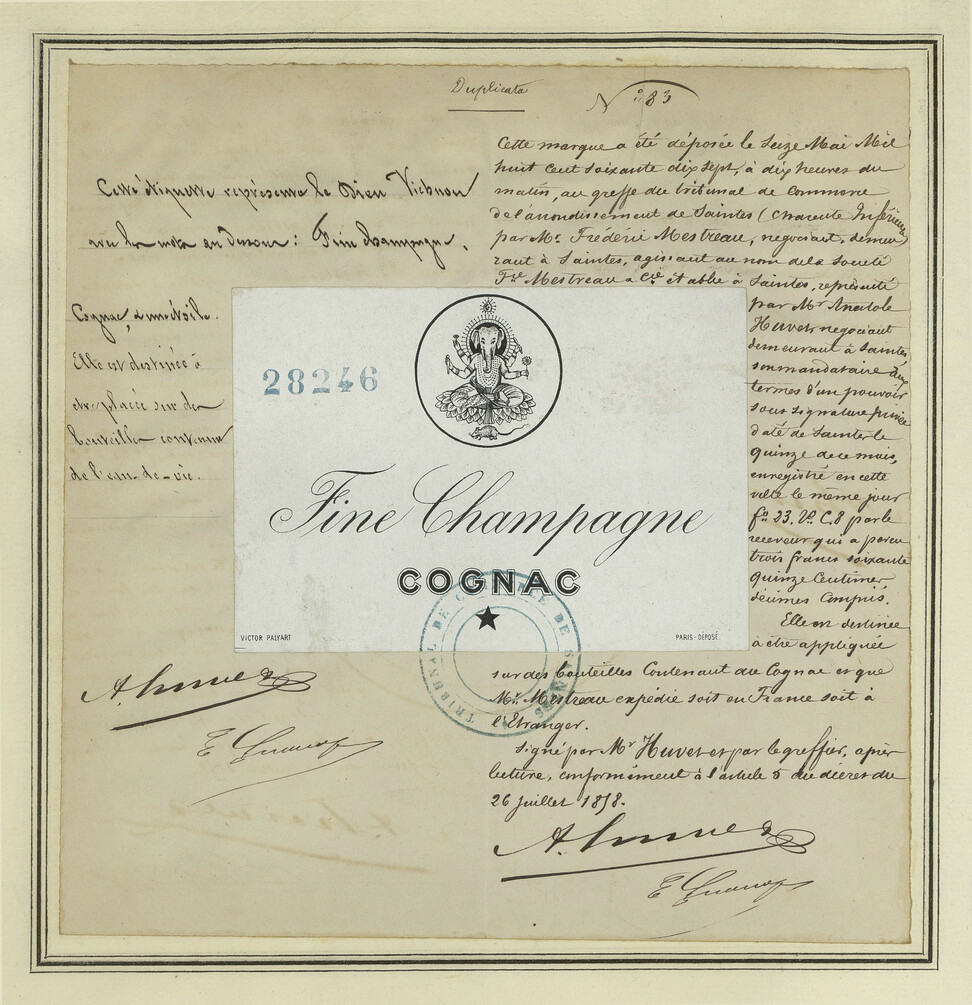 Duplicata
N° 83
Cette étiquette représente le Dieu Vichnou
avec les mots au dessous : Fine Champagne,
Cognac, & une étoile.
Elle est destinée à
être placée sur des
bouteilles contenant
de l'eau-de-vie.
Cette marque a été déposée le Seize Mai Mil
huit cent soixante dix sept, à dix heures du
matin, au greffe du tribunal de Commerce
de l'arrondissement de Saintes (Charente Inférieure)
par Mr. Frédéric Mestreau, negociant, demeu
rant à Saintes, agissant au nom de la Société
Fre Mestreau & Cie établie à Saintes, représenté
par Mr Anatole
Huvet negociant
demeurant à Saintes,
son mandataire aux
termes d'un pouvoir
sous signature privée
daté de Saintes le
quinze de ce mois,
enregistré en cette
ville le même jour
fo 23. Vo C.8 par le
receveur qui a perçu
trois francs soixante
quinze Centimes
décimes Compris.
Elle est destinée
à être appliquée
sur des bouteilles Contenant du Cognac et que
Mr. Mestreau expédie soit en France soit à
l'Etranger.
Signé par Mr Huvet et par le greffier, après
lecture, conformément à l'article 5 du décret du
26 Juillet 1858.
28246
Fine Champagne
COGNAC
VICTOR PALYART
PARIS - DÉPOSÉ
TRIBUNAL DE COMMERCE DE SAINTES
A. Huvet
A. Huvet